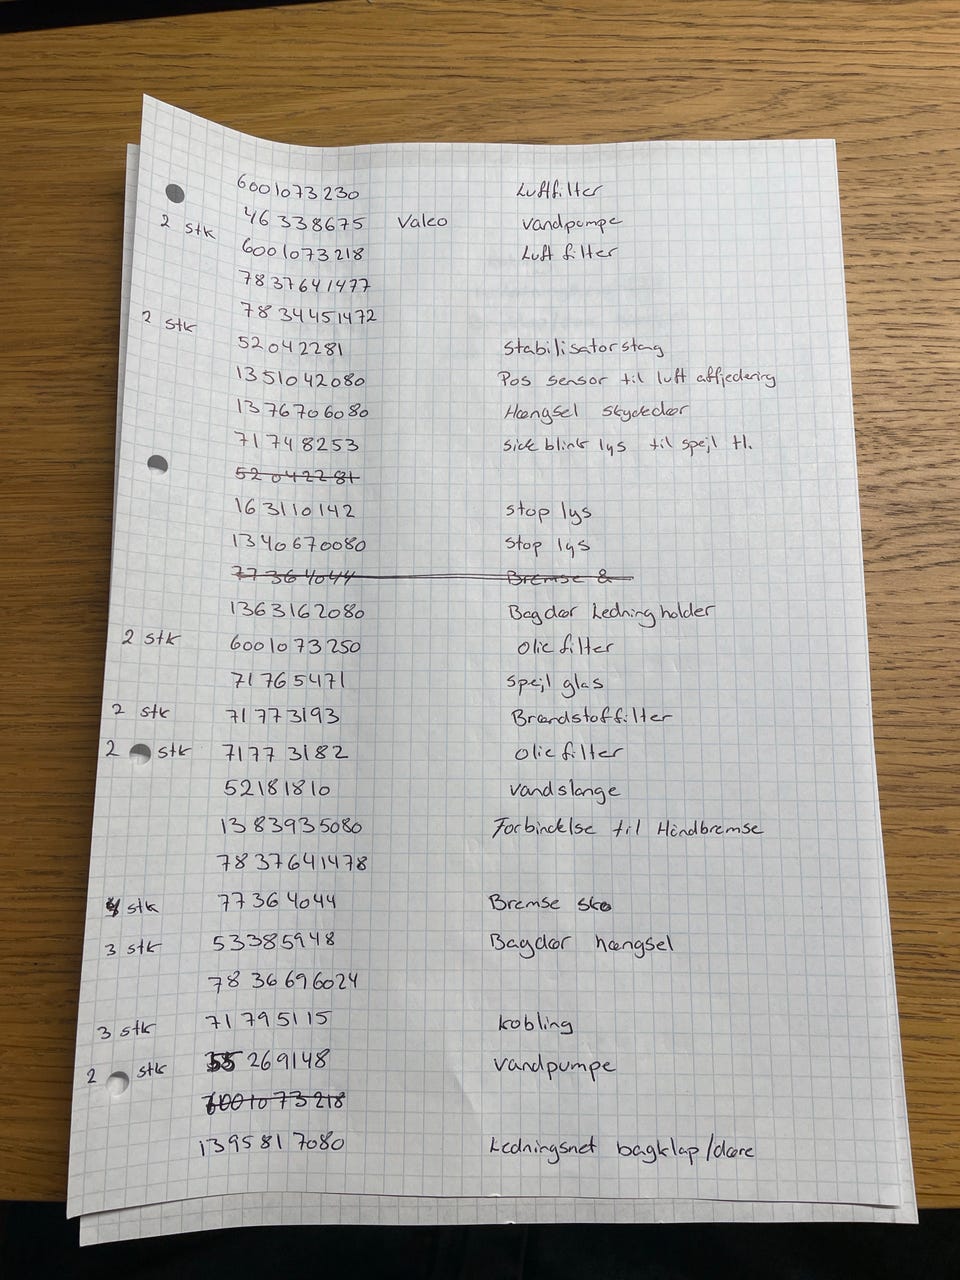 6001073230 Luftfilter
2 stk 46338675 Valeo vandpumpe
6001073218 Luft filter
7837641477
7834451472
2 stk 52042281 Stabilisatorstag
1351042080 Pos sensor til luft affjedering
1376706080 Hængsel skydedør
71748253 Side blink lys til spejl
52042281
163110142 stop lys
1340670080 stop lys
77364044 Bremse &
1363162080 Bagdør Ledning holder
2 stk 6001073250 Olie filter
71765471 Spejl glas
2 stk 71773193 Brændstoffilter
2 stk 71773182 Olie filter
52181810 vandslange
1383935080 Forbindelse til Håndbremse
7837641478
stk 77364044 Bremse sko
3 stk 53385948 Bagdør hængsel
7836696024
3 stk 71795115 kobling
2 stk 55269148 vandpumpe
6001073218
1395817080 Ledningsnet bagklap/døre